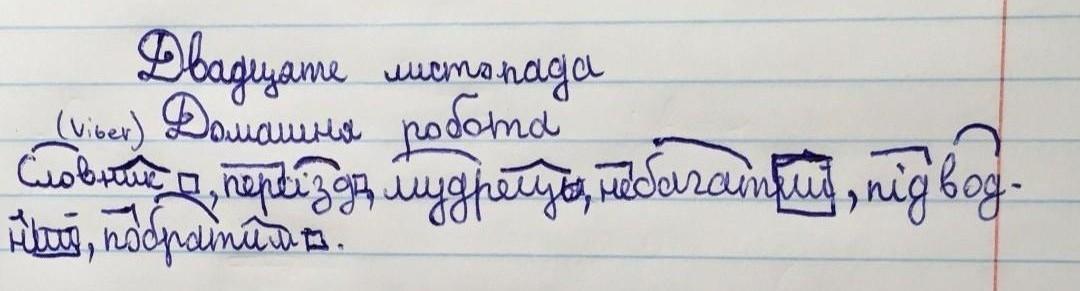 Двадцяте листопада
(Viber) Домашня робота
Словник, переїзд, мудрець, небагатий, підвод-
ний, побратим.